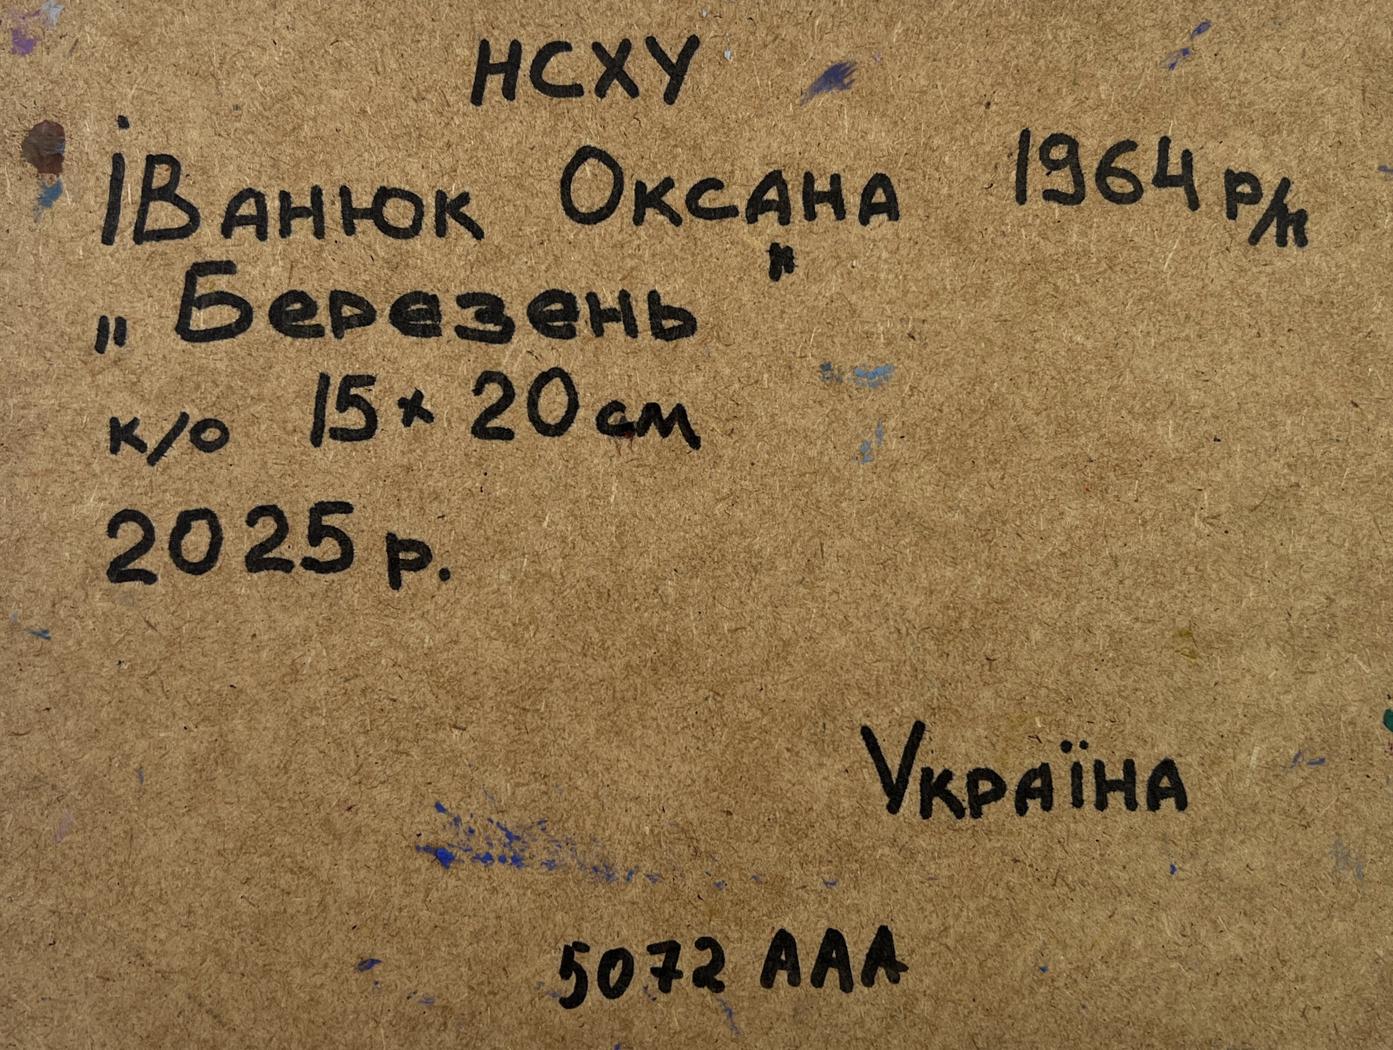 НСХУ
Іванюк Оксана 1964 р/н
„Березень"
к/о 15x20 см
2025 р.
Україна
5072 ААА